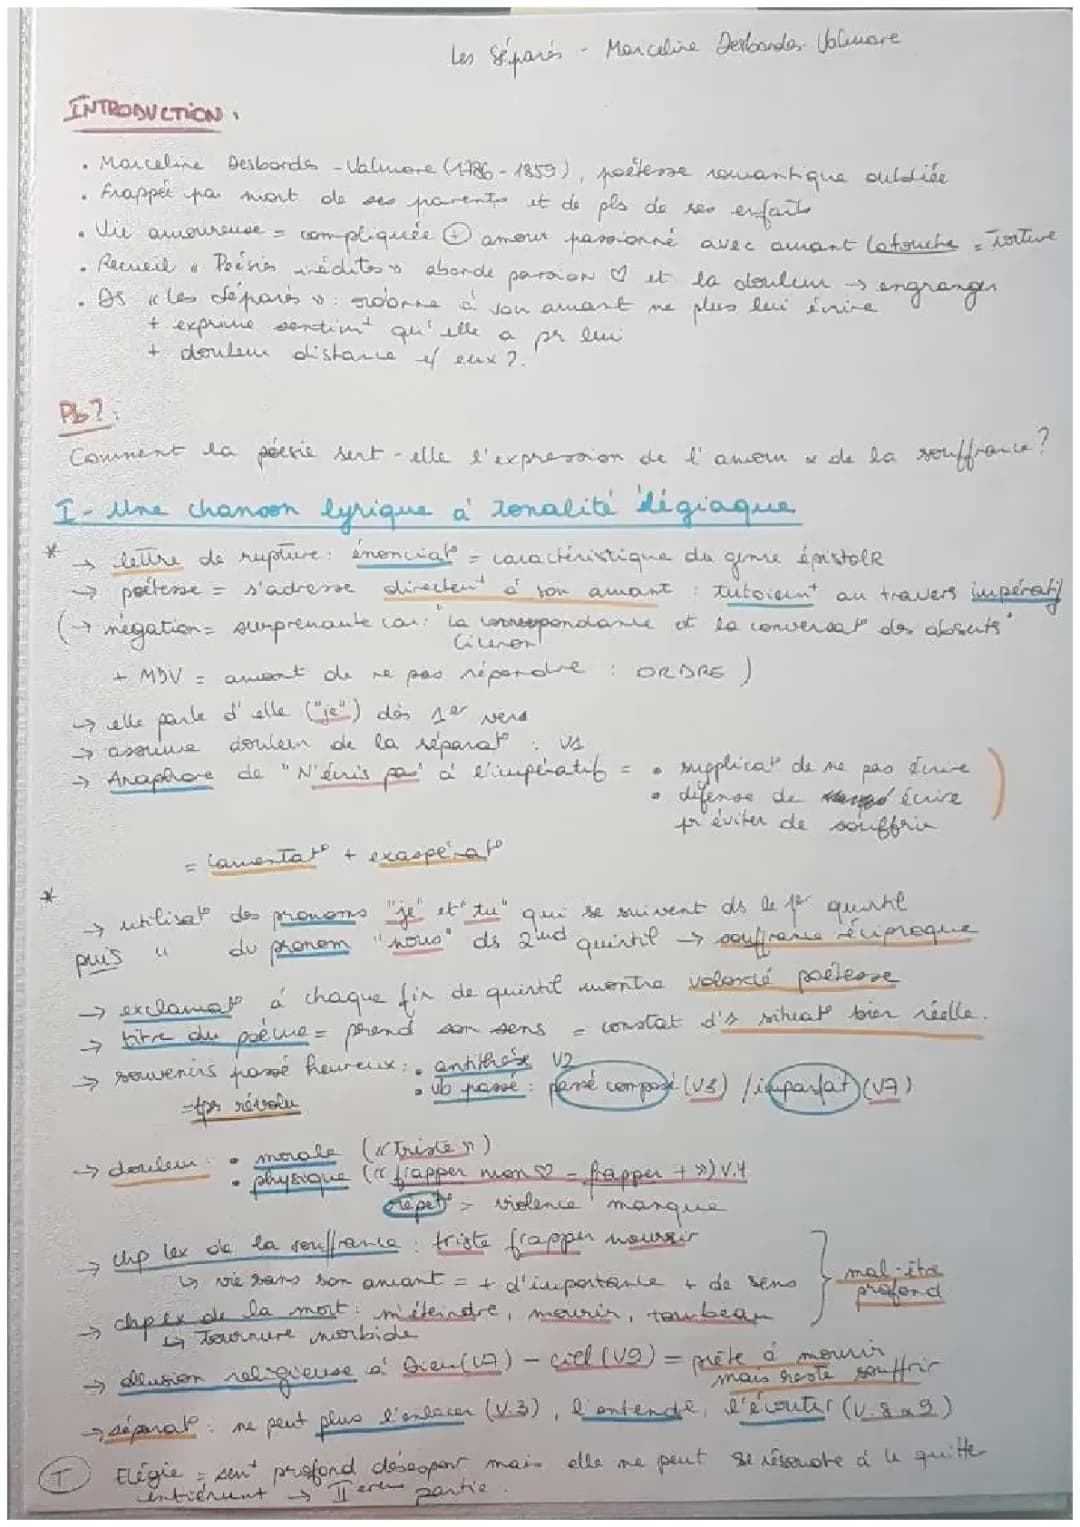 Les Séparés - Marceline Desbordes-Valmore
INTRODUCTION :
• Marceline Desbordes-Valmore (1786-1859), poétesse romantique oubliée
• frappée par mort de ses parents et de pls de ses enfants
• Vie amoureuse = compliquée ⊕ amour passionné avec amant Latouche = Torture
• Recueil « Poésies inédites » aborde passion ♡ et la douleur → engranger
• Ds « les séparés » : ordonne à son amant ne plus lui écrire
+ exprime sentimt qu'elle a pr lui
+ douleur distance e/ eux ?.
Pb? :
Comment la poésie sert-elle l'expression de l'amour & de la souffrance ?
I - Une chanson lyrique à tonalité élégiaque
* → lettre de rupture : énonciat° = caractéristique du genre épistolR
→ poétesse = s'adresse directemt à son amant : tutoiemt au travers impératif
(→ négation = surprenante car : "la correspondance et la conversat° des absents"
Ciceron
+ MDV = amant de ne pas répondre : ORDRE )
→ elle parle d'elle ("je") dès 1er vers
→ assume douleur de la séparat° : V1
→ Anaphore de "N'écris pas" à l'impératif = • supplicat° de ne pas écrire
• défense de écrire
pr éviter de souffrir
= lamentat° + exaspérat°
*
→ utilisat° des pronoms "je" et "tu" qui se suivent ds le 1er quintil
puis " du pronom "nous" ds 2nd quintil → souffrance réciproque
→ exclamat° à chaque fin de quintil montre volonté poétesse
→ titre du poème = prend son sens = constat d'1 situat° bien réelle.
→ souvenirs passé heureux : • antithèse V2
• vb passé : passé composé (V3) / imparfait (V7)
= tps révolu
→ douleur : • morale (« triste »)
• physique (« frapper mon ♡ - frapper + ») V.4
répet° = violence manque
→ chp lex de la souffrance : triste frapper mourir
↳ vie sans son amant = + d'importance + de sens
→ chp lex de la mort : m'éteindre, mourir, tombeau
↳ Tournure morbide
mal-être profond
→ allusion religieuse à Dieu (V7) - ciel (V9) = prête à mourir
mais reste souffrir
→ séparat° : ne peut plus l'enlacer (V.3), l'entendre, l'écouter (V.8 à 9)
(T) Elégie = sent profond désespoir mais elle ne peut se résoudre à le quitter
entièrement → II partie.